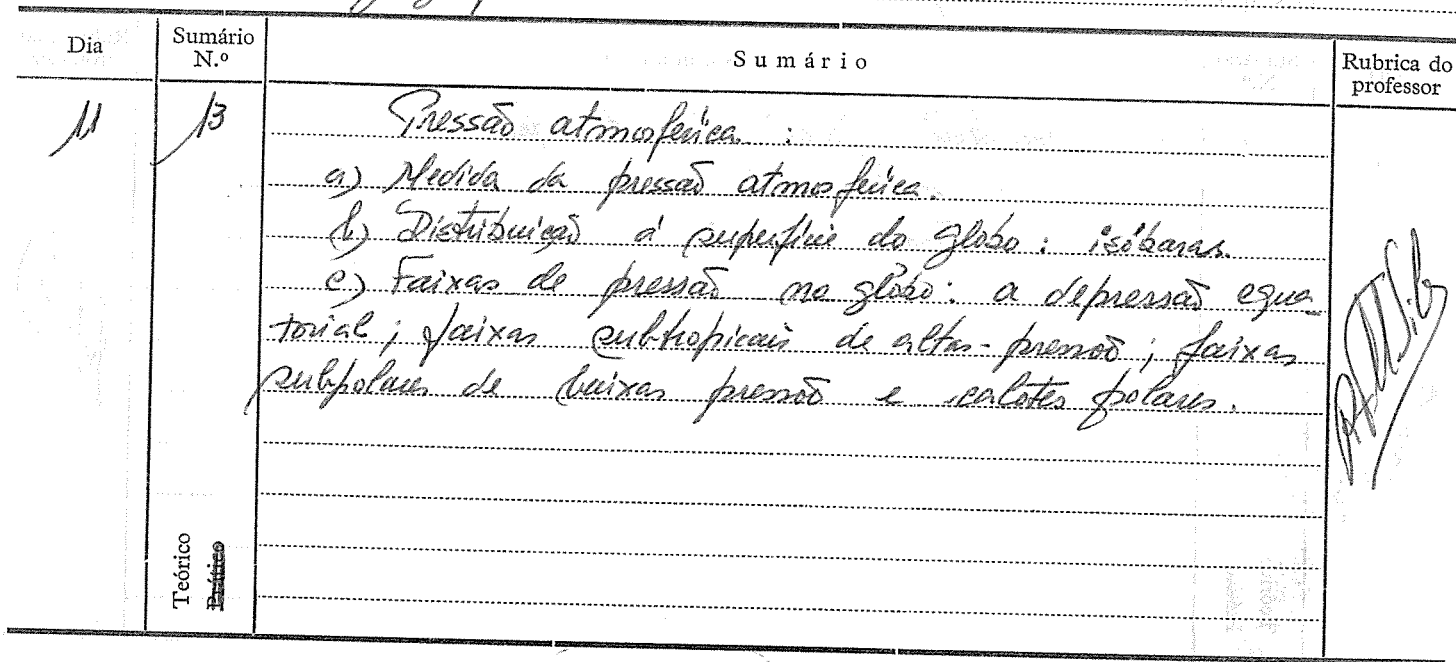 Dia
Sumário
N.º
Sumário
Rubrica do
professor
11
13
Pressão atmosférica :
a) Medida da pressão atmosférica.
b) Distribuição à superfície do globo : isóbaras.
c) Faixas de pressão no globo : a depressão equa-
torial ; faixas subtropicais de altas-pressão ; faixas
subpolares de baixas pressão e calotes polares.
Teórico
Prático